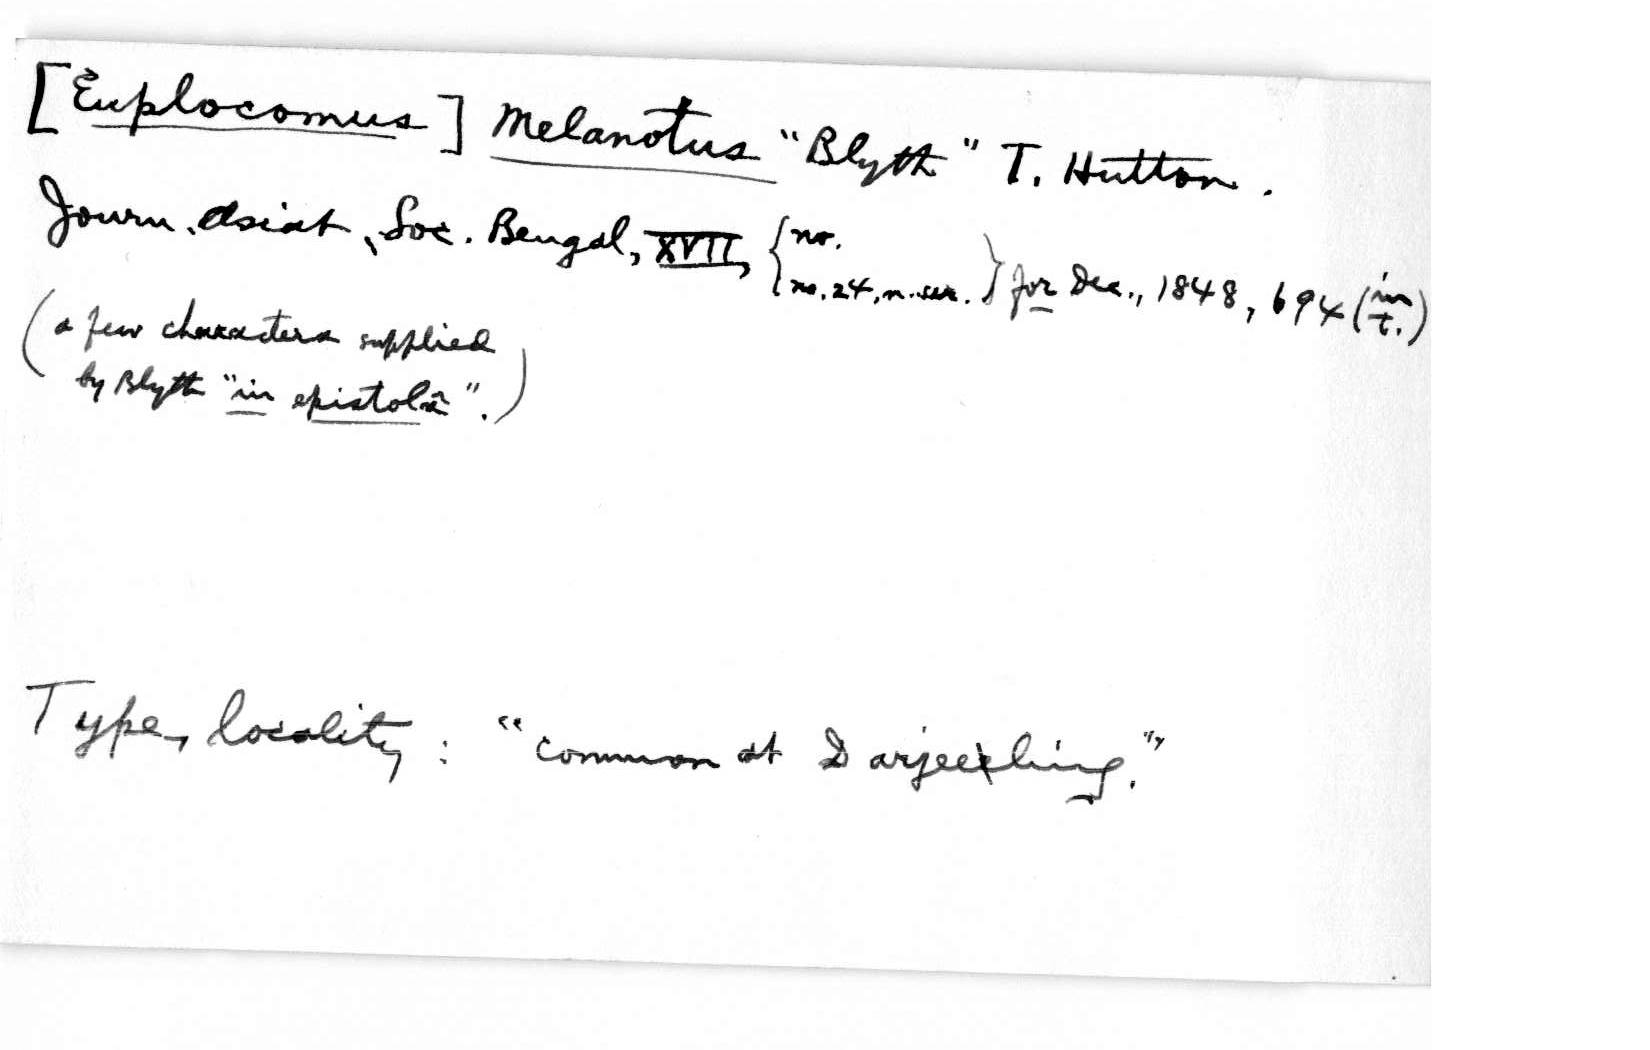 [Euplocomus] Melanotus "Blyth" T. Hutton.
Journ. Asiat. Soc. Bengal, XVII, {no.
no. 24, n. ser.} for Dec., 1848, 694 (in
t.)
(a few characters supplied
by Blyth "in epistolâ".)
Type locality: "common at Darjeeling."